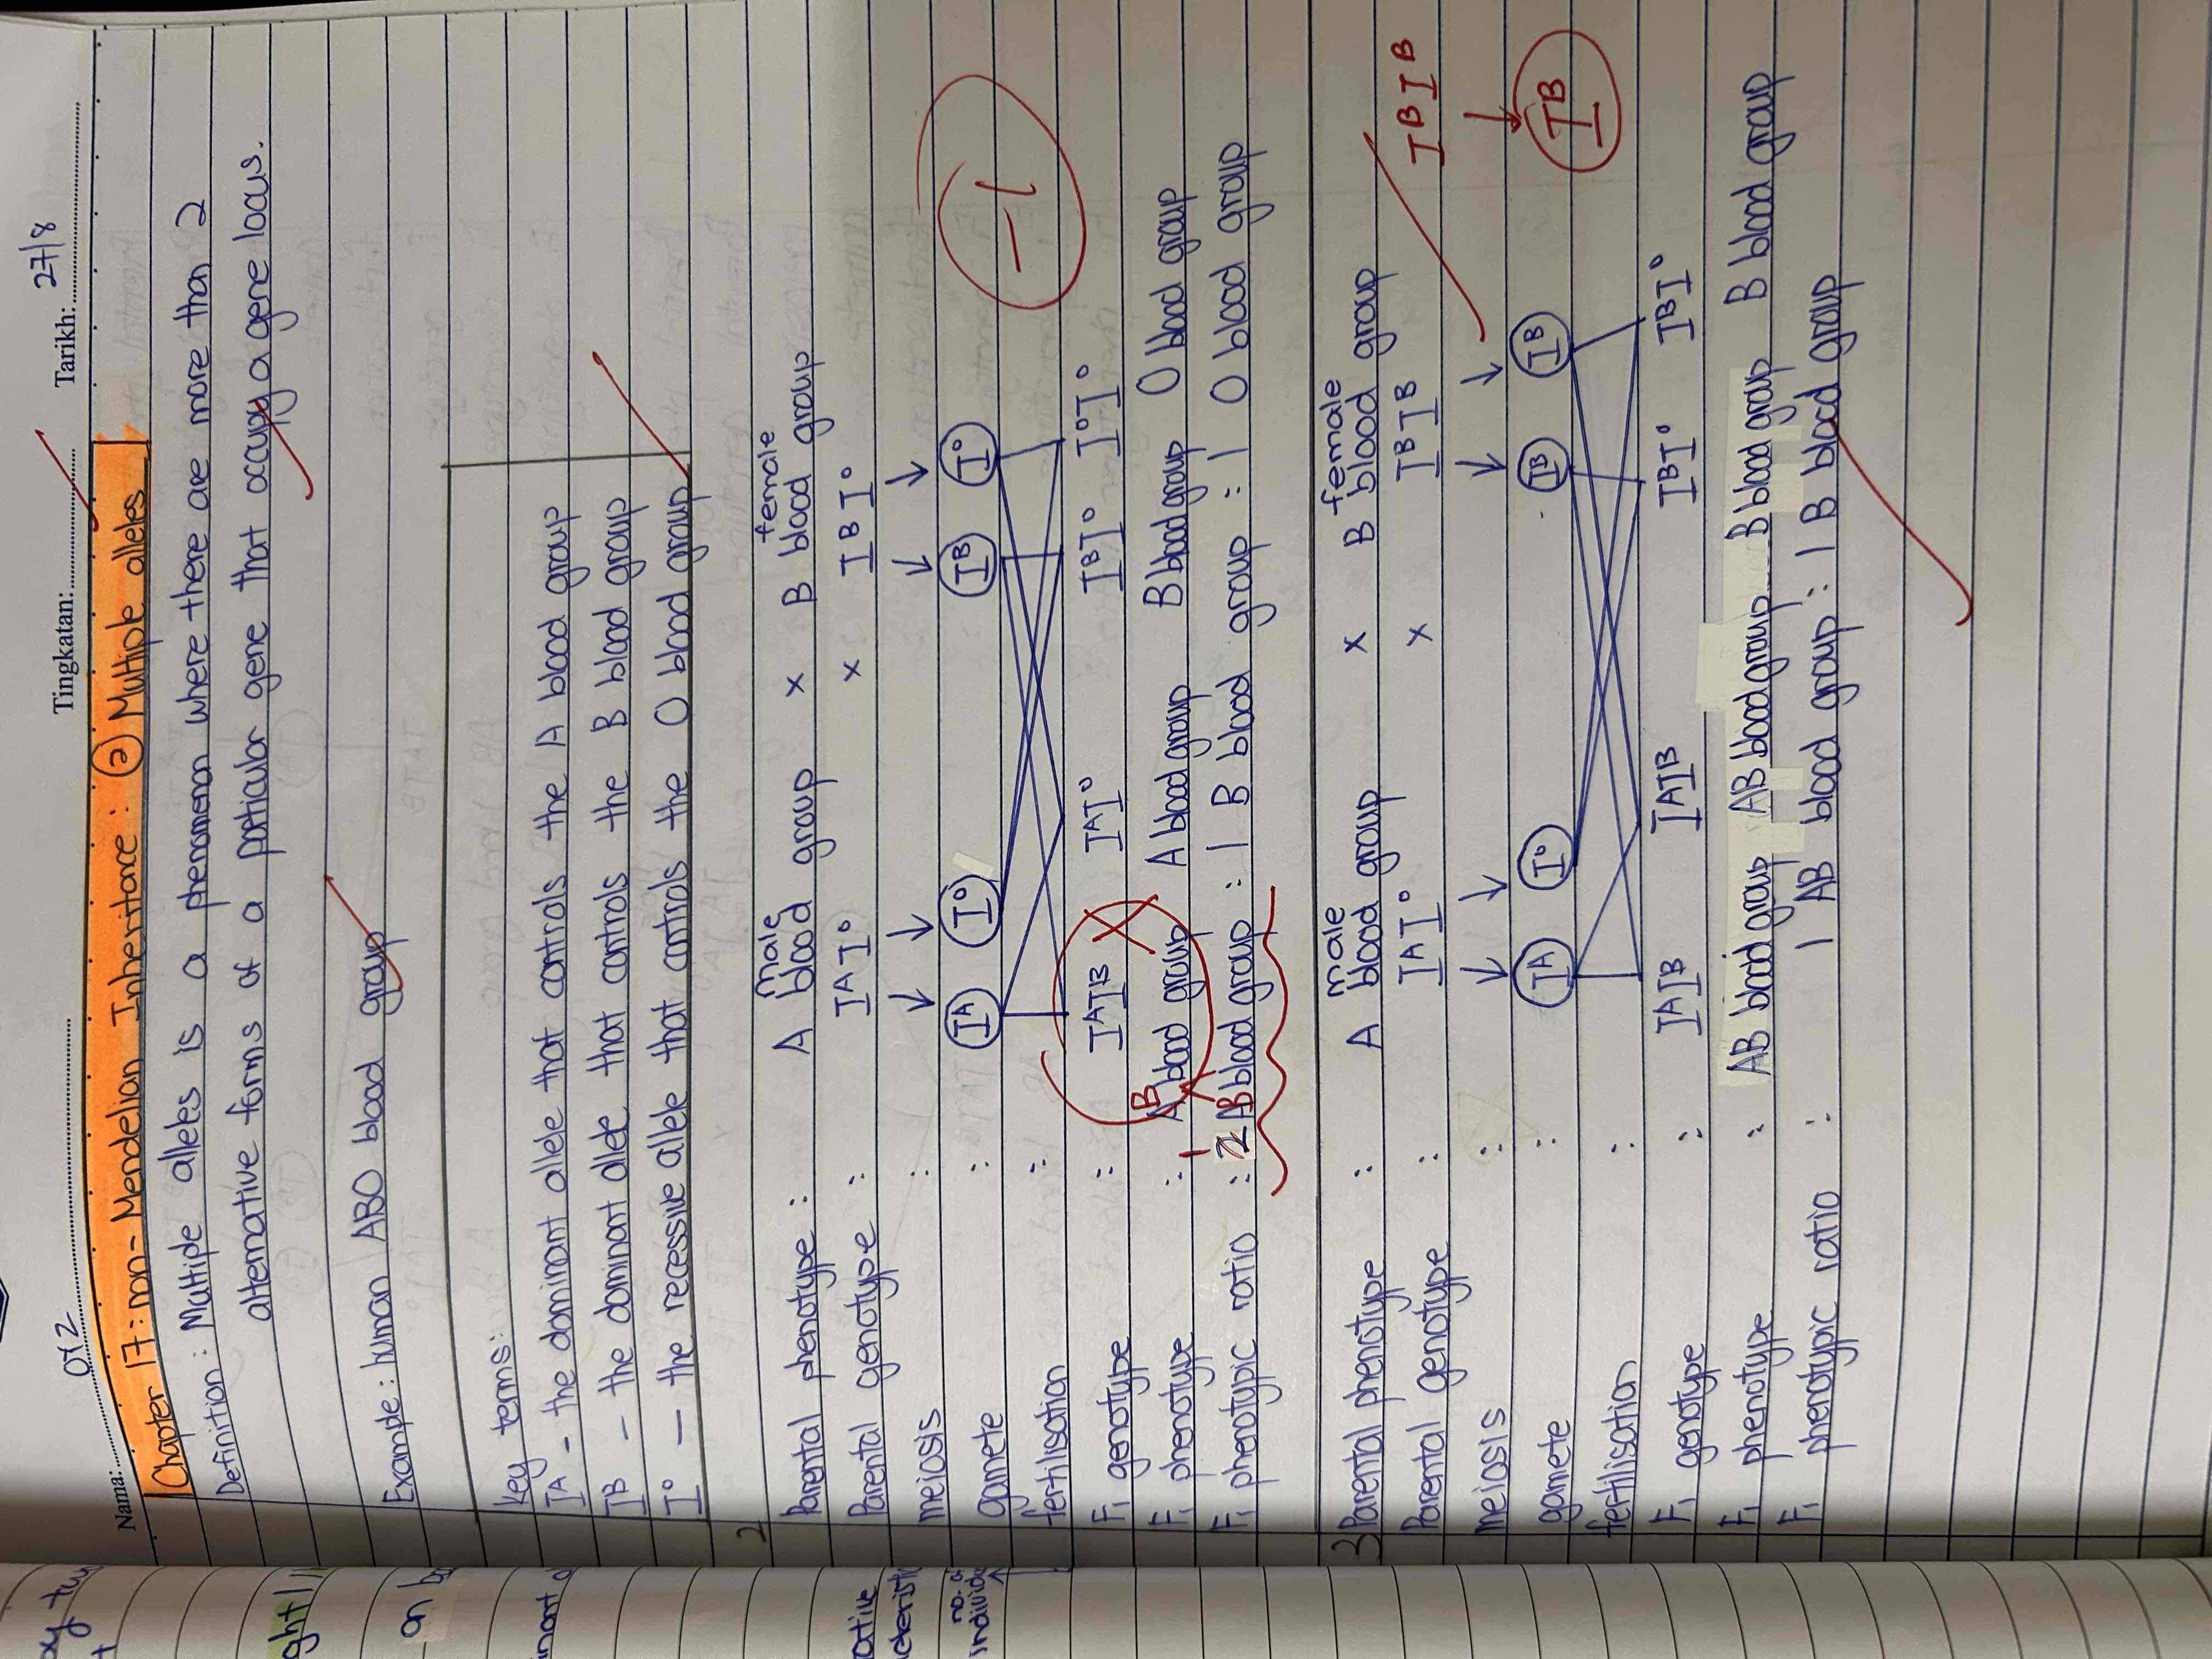 Nama: Tingkatan: Tarikh: 27/8
Chapter 17: non-Mendelian Inheritance: ② Multiple alleles
Definition: Multiple alleles is a phenomenon where there are more than 2
alternative forms of a particular gene that occupy a gene locus.
Example: human ABO blood group
Key terms:
IA - the dominant allele that controls the A blood group
IB - the dominant allele that controls the B blood group
I° - the recessive allele that controls the O blood group
male female
2 Parental phenotype : A blood group x B blood group
Parental genotype : IA I° x IB I°
meiosis : ↓ ↓ ↓ ↓
gamete : IA I° IB I°
fertilisation :
-1
F1 genotype : IAIB IAI° IBI° I°I°
F1 phenotype : AB blood group A blood group B blood group O blood group
F1 phenotypic ratio : 1 AB blood group : 1 B blood group : 1 O blood group
male female
3 Parental phenotype : A blood group x B blood group
Parental genotype : IA I° x IB IB IB IB
meiosis : ↓ ↓ ↓ ↓ ↓
gamete : IA I° IB IB IB
fertilisation :
F1 genotype : IAIB IAIB IBI° IBI°
F1 phenotype : AB blood group AB blood group B blood group B blood group
F1 phenotypic ratio : 1 AB blood group : 1 B blood group
ght
on b
inant
no. o
individ